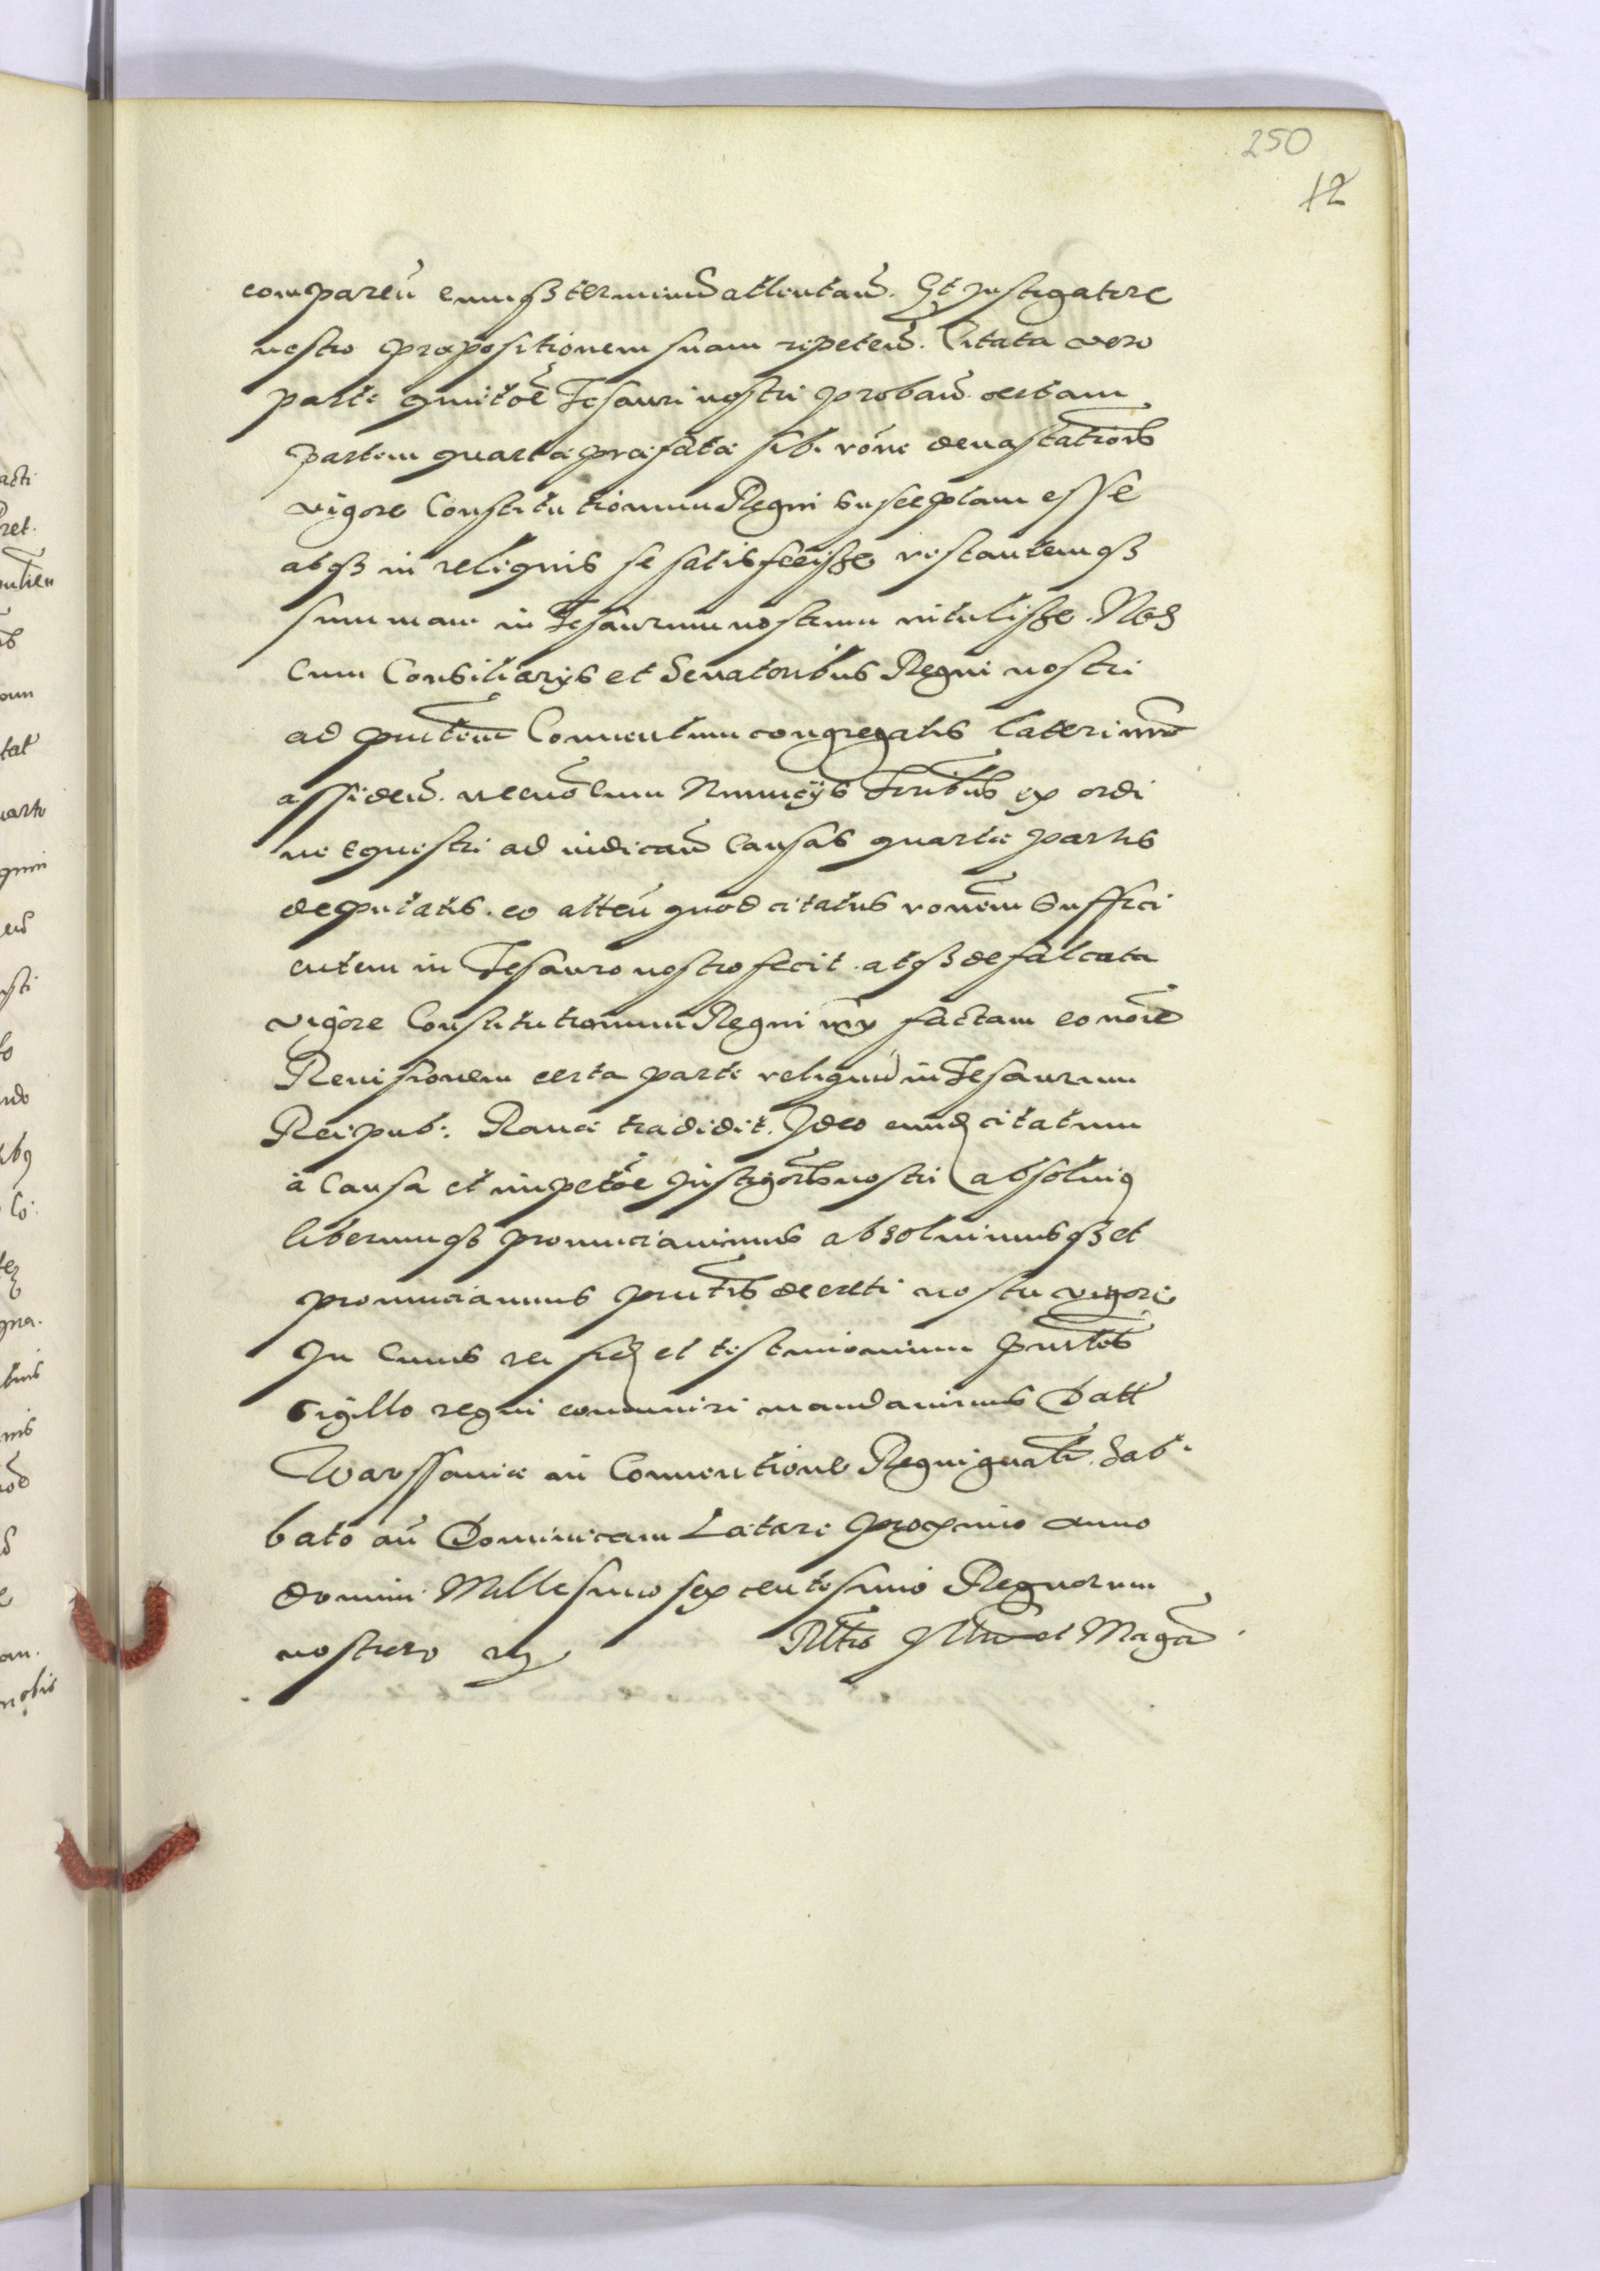 250
12
compareñ eumq3 terminũ attentañ. Et Instigatore
nostro propositionem suam repeteñ. Citata vero
parte quietoẽ Tesauri nostri probañ certam
partem quarta præfata sibi rõne devastationis
vigore Constitutionum Regni susceptam esse
atq3 in reliquis se satisfecisse restantemq3
summam in Tesaurum nostrum intulisse. Nos
cum Consiliarys et Senatoribus Regni nostri
ad pñtem Conventum congregatis lateri nrõ
assideñ. necnõ cum Nuncijs Trribus ex ordi
ne equestri ad iudicañ causas quartæ partis
deputatis. eo atteñ quod citatus rõnem suffici
entem in Tesauro nostro fecit. atq3 defalcata
vigore Constitutionum Regni iux factam eo noie
Revisionem certa parte reliquũ in Tesaurum
Reipub: Ravæ tradidit. Ideo eund citatum
à causa et impetõe Instigoris nostri absolvi
liberumq3 pronunciavimus absolvimusq3 et
pronunciamus pñtis decreti nostri vigore
In cuius rei fid et testimonium pñtibus
sigillo regni communiri mandavimus Datt
Warssaviæ in Conventione Regni gnali. Sab:
bato añ Dominicam Lætare proximo anno
domini Millesimo sexcentesimo Regnorum
nostroro
Rltio Illris et Magci